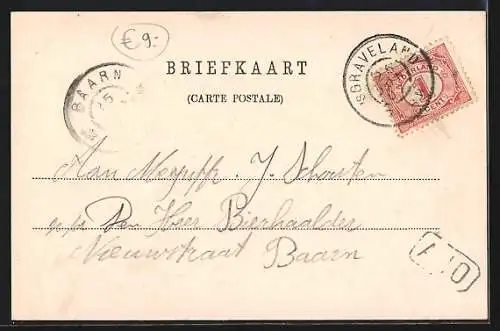 € 9-
BAARN
25
'SGRAVELAND
NEDERLAND
1
CENT
BRIEFKAART
(CARTE POSTALE)
Aan Mejuffr. J. Schouten
p/a Den Heer Bierhaalder
Nieuwstraat Baarn